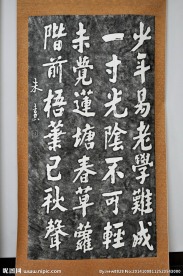 少年易老學難成
一寸光陰不可輕
未覺蓮塘春草
階前梧葉已秋聲
朱熹
昵图网